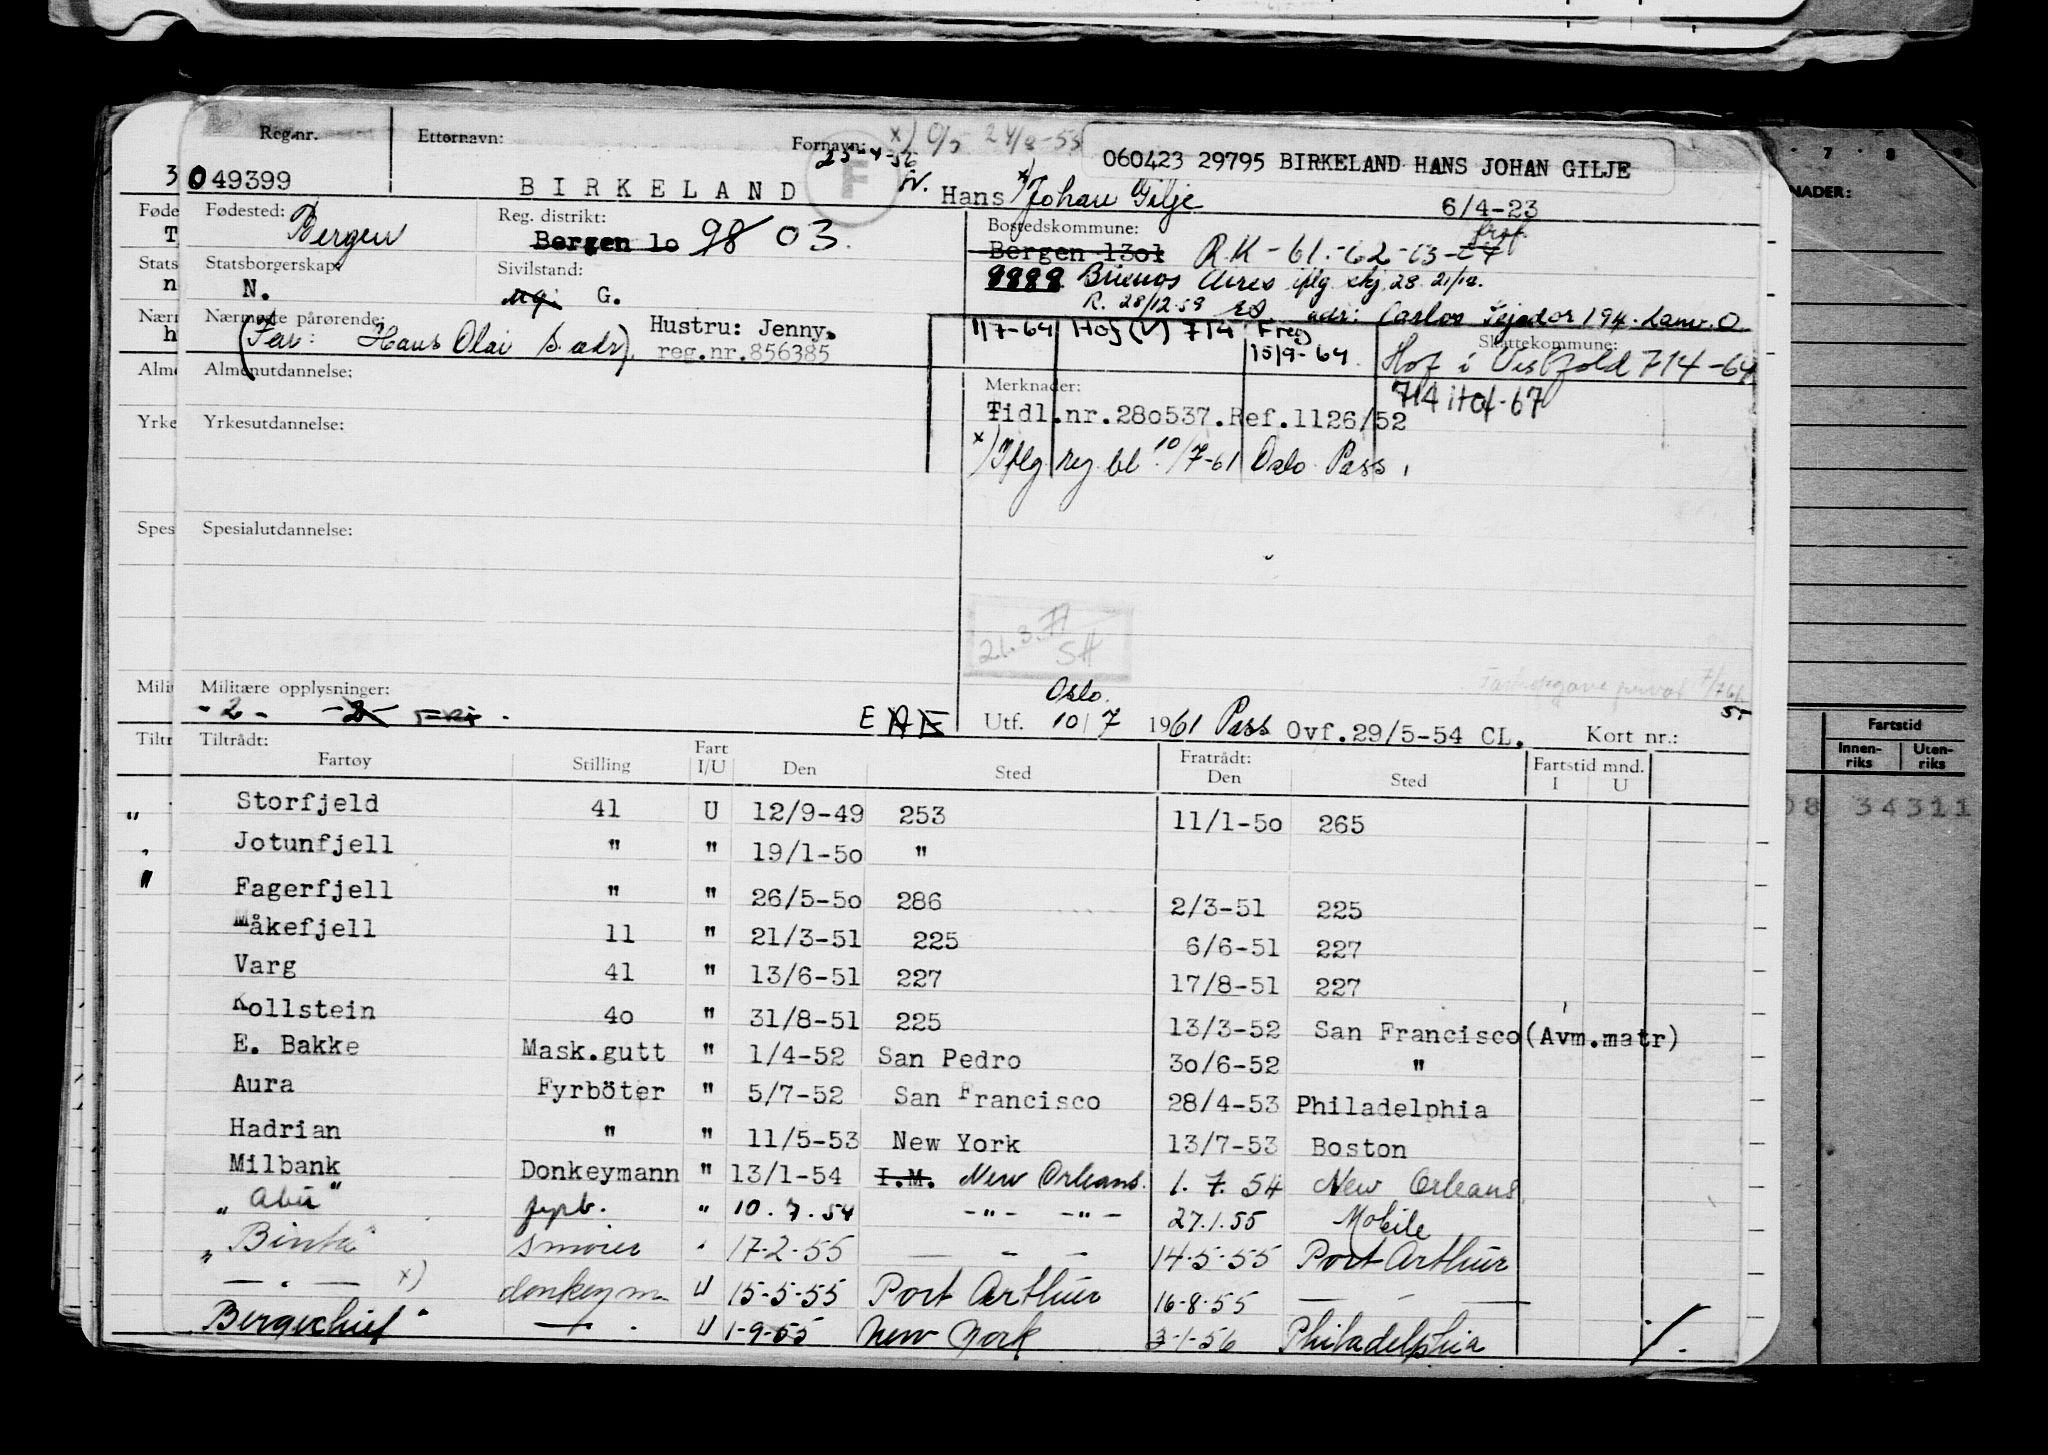 Reg.nr. Etternavn: Fornavn: x) 24/8-55
25-4-56
060423 29795 BIRKELAND HANS JOHAN GILJE
3 049399 BIRKELAND F Hans x) Johan Gilje 6/4-23
Føde Fødested: Bergen Reg. distrikt: Bostedskommune:
T Bergen 1o 98 03. Bergen 13o1 R.K - 61 - 62 - 63 - 64
Stats Statsborgerskap: Sivilstand: 9999 Buenos Aires iflg. skj. 28. 21/12.
n N. ug. G. R. 28/12.59 adr: Carlos Tejedor 194. Lanu. O
Nærr Nærmeste pårørende: Hustru: Jenny, 1/7-64 Hof (V) 714 Freg Skattekommune:
h (Far: Hans Olai s. adr). reg.nr.856385 15/9-64 Hof i Vestfold 714-64
Alme Almenutdannelse: Merknader: 714 Hof-67
Tidl.nr.28o537.Ref.1126/52
Yrke Yrkesutdannelse: x) Iflg reg bl 10/7-61 Oslo Pass,
Spes Spesialutdannelse:
21.3.77
SH
Milit Militære opplysninger: Oslo.
- 2 - -2- E Utf. 10/7 1961 Pass Ovf.29/5-54 CL. Kort nr.:
Tiltr Tiltrådt: Fratrådt: Fartstid mnd.
Fartøy Stilling Fart I/U Den Sted Den Sted I U
" Storfjeld 41 U 12/9-49 253 11/1-5o 265
Jotunfjell " " 19/1-5o "
" Fagerfjell " " 26/5-5o 286 2/3-51 225
Måkefjell 11 " 21/3-51 225 6/6-51 227
Varg 41 " 13/6-51 227 17/8-51 227
Kollstein 4o " 31/8-51 225 13/3-52 San Francisco (Avm.matr)
E. Bakke Mask.gutt " 1/4-52 San Pedro 3o/6-52 "
Aura Fyrböter " 5/7-52 San Francisco 28/4-53 Philadelphia
Hadrian " " 11/5-53 New York 13/7-53 Boston
Milbank Donkeymann " 13/1-54 I.M. New Orleans. 1. 7. 54 New Orleans
" Abu " fyrb. " 10. 7. 54 -"- -"- 27.1.55 Mobile
" Binta " smører " 17-2-55 — - - 14-5-55 Port Arthur
— " — x) donkeym U 15-5-55 Port Arthur 16-8-55 — - —
Bergechief " — " U 1-9-55 New York 3-1-56 Philadelphia
7 8 9
NADER:
Fartstid
Innen-riks Uten-riks
08 34311